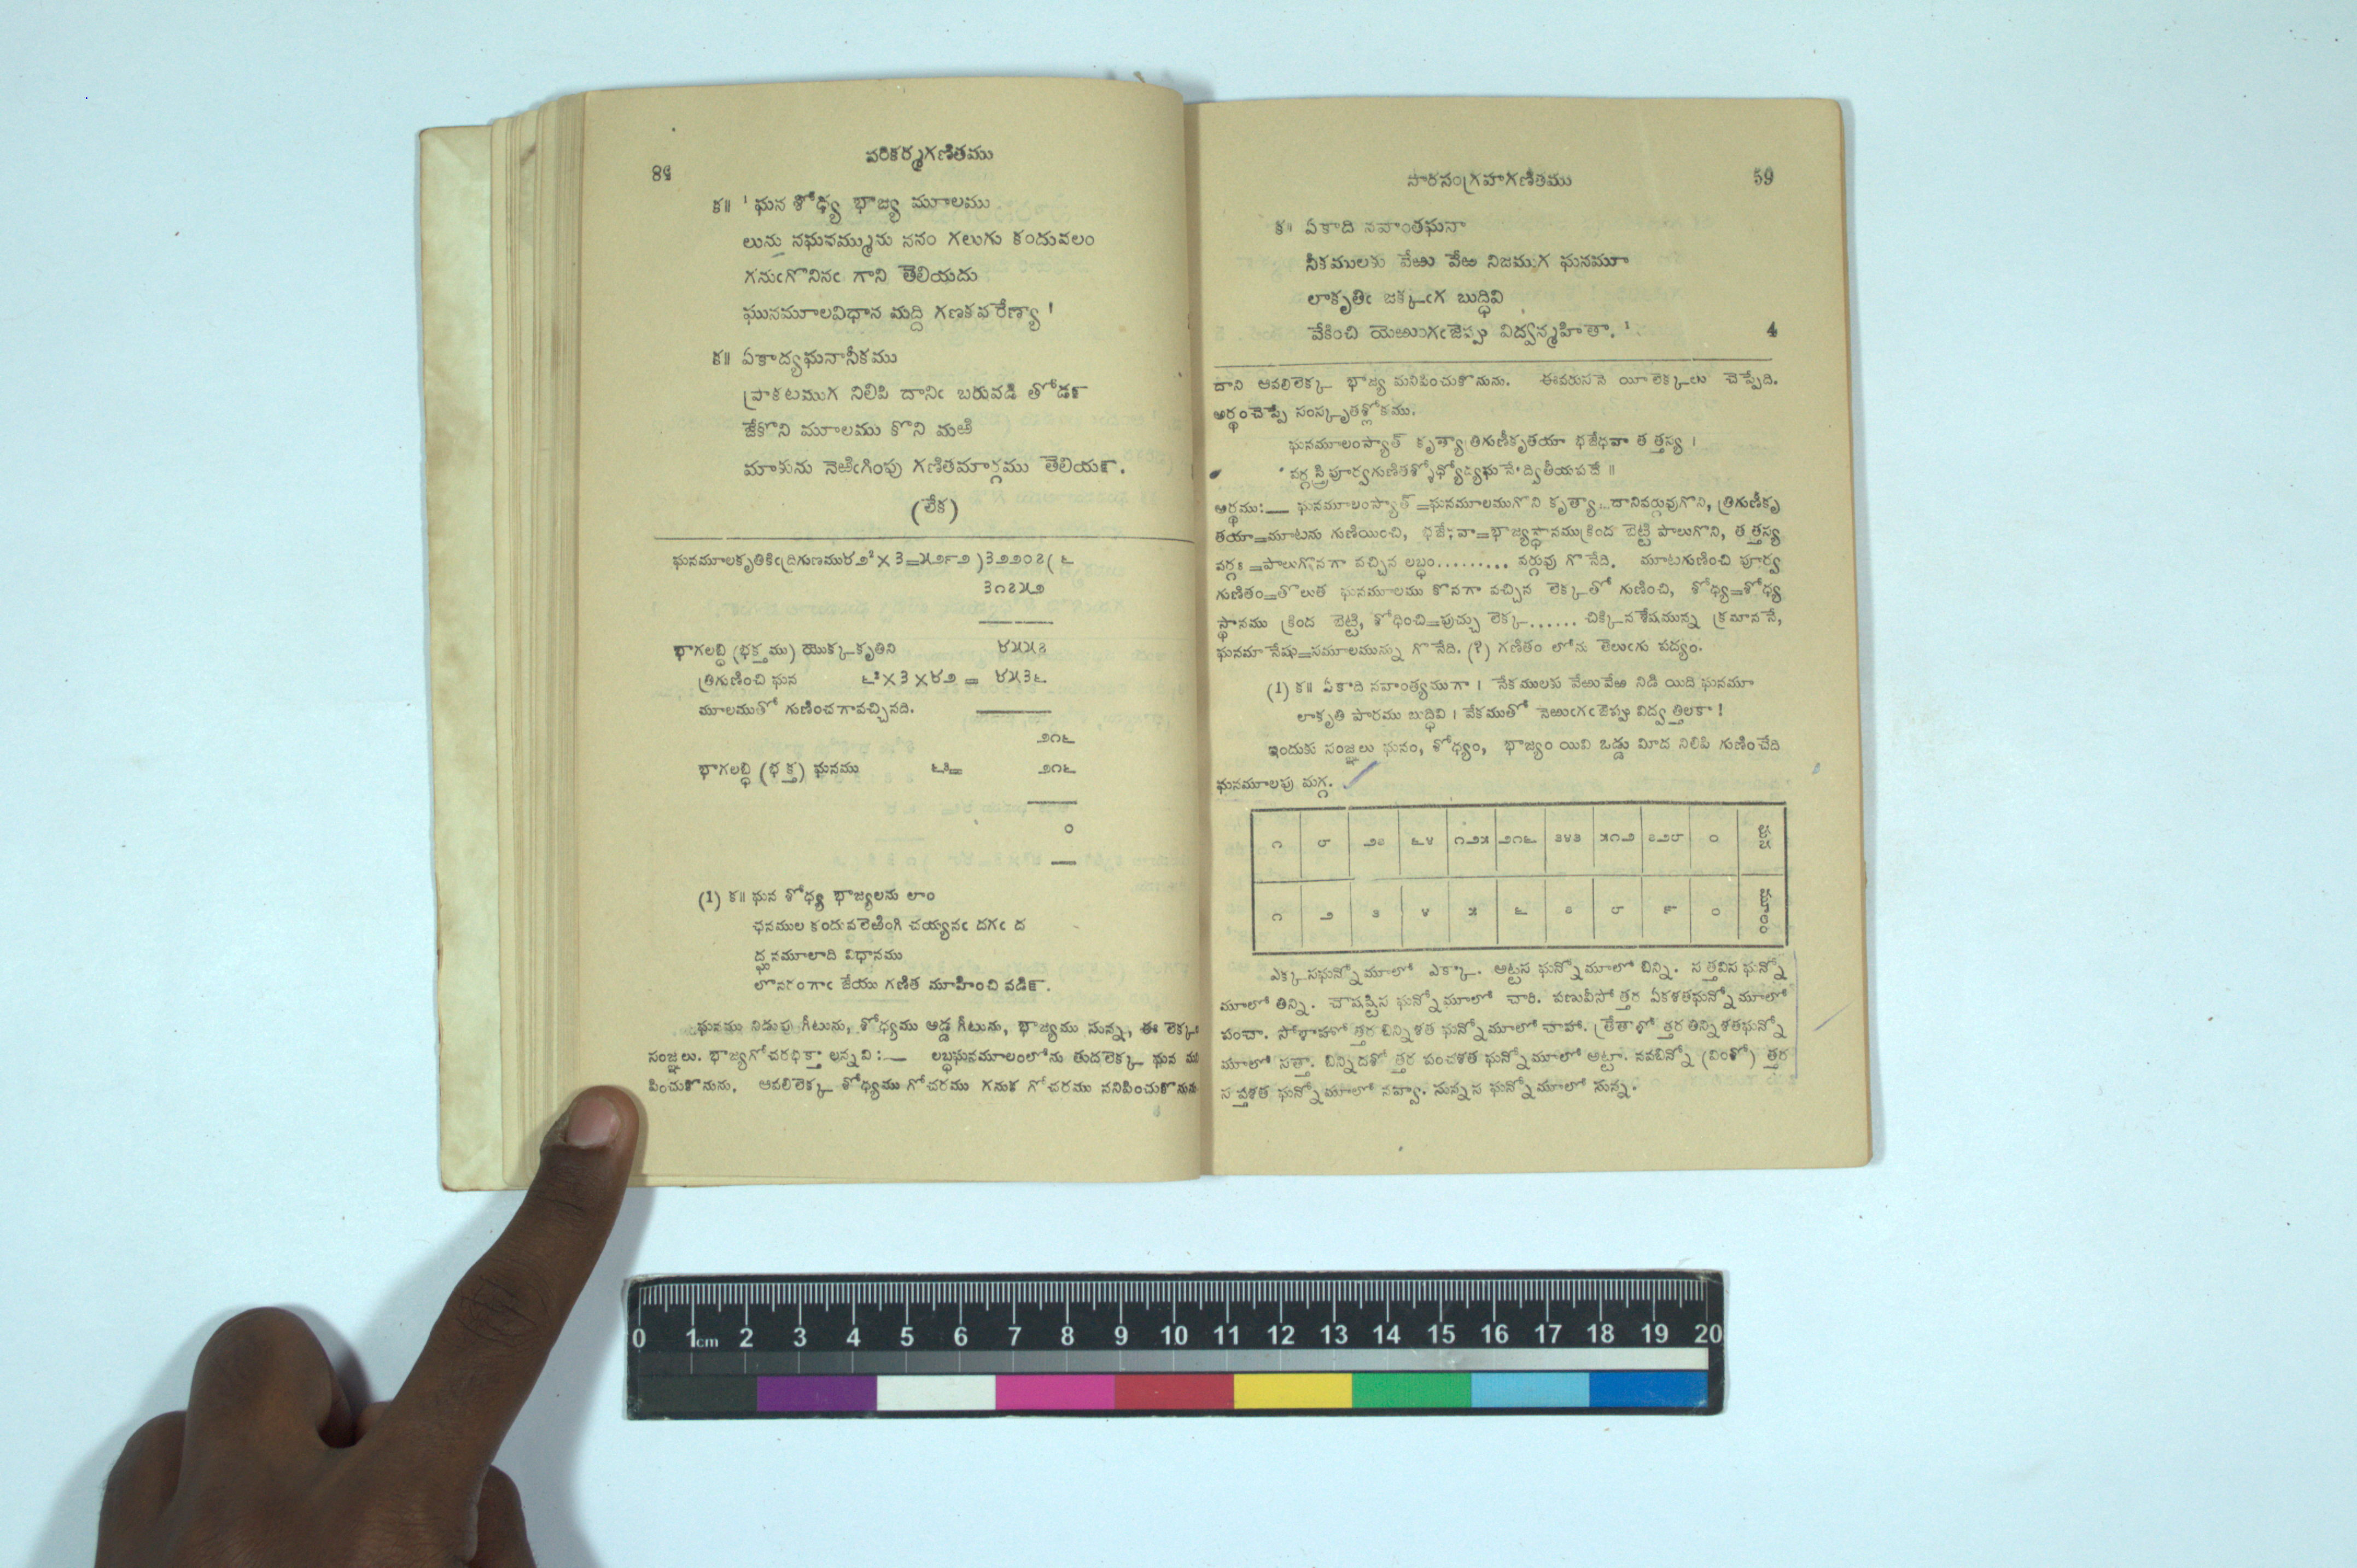 పరికర్మగణితము
58
క॥ ' ఘన శోధ్య భాజ్య మూలము
లును నఘనమ్మును ననం గలుగు కందువలం
గనుఁగొనినఁ గాని తెలియదు
ఘనమూలవిధాన మద్ది గణకవరేణ్యా '
క॥ ఏకాద్యఘనానీకము
ప్రాకటముగ నిలిపి దానిఁ బరువడి తోడ౯
జేకొని మూలము కొని మఱి
మాకును నెఱిఁగింపు గణితమార్గము తెలియ౯.
(లేక)
౩౧౭౫౨
భాగలబ్ధి (భక్తము) యొక్క కృతిని ౪౫౫౭
త్రిగుణించి ఘన ౬²×౩×౪౨ = ౪౫౩౬
మూలముతో గుణించగావచ్చినది.
౨౧౬
భాగలబ్ధి (భక్త) ఘనము ౬³= ౨౧౬
౦
(1) క॥ ఘన శోధ్య భాజ్యలను లాం
ఛనముల కందువలెఱింగి చయ్యనఁ దగఁ ద
ద్ఘనమూలాది విధానము
లొనరంగాఁ జేయు గణిత మూహించి వడి౯.
ఘనము నిడుపు గీటును, శోధ్యము అడ్డ గీటును, భాజ్యము సున్న, ఈ లెక్కల
సంజ్ఞలు. లబ్ధఘనమూలంలోను తుదలెక్క ఘన మని
పించుకొనును. ఆవలిలెక్క శోధ్యము గోచరము గనుక గోచరము ననిపించుకొనును
సారసంగ్రహగణితము 59
క॥ ఏకాది నవాంతఘనా
నీకములకు వేఱు వేఱ నిజముగ ఘనమూ
లాకృతిఁ జక్కఁగ బుద్ధివి
వేకించి యెఱుఁగఁజెప్పు విద్వన్మహితా. ' 4
దాని ఆవలిలెక్క భాజ్య మనిపించుకొనును. ఈవరుసనె యీ లెక్కలు చెప్పేది.
అర్థంచెప్పే సంస్కృతశ్లోకము.
ఘనమూలంస్యాత్ కృత్యా త్రిగుణీకృతయా భజేథవా త త్తస్య ।
అర్థము:— ఘనమూలంస్యాత్=ఘనమూలముగొని కృత్యా...దానివర్గువుగొని, త్రిగుణీకృ
తయా=మూటను గుణియించి, భజే;వా=భాజ్యస్థానముక్రింద బెట్టి పాలుగొని, త త్తస్య
వర్గః=పాలుగొనగా వచ్చిన లబ్ధం......... వర్గువు గొనేది. మూటగుణించి పూర్వ
గుణితం=తొలుత ఘనమూలము కొనగా వచ్చిన లెక్కతో గుణించి, శోధ్య=శోధ్య
స్థానము క్రింద బెట్టి, శోధించి=పుచ్చు లెక్క...... చిక్కిన శేషమున్న క్రమాననే,
ఘనమానేషు=సమూలమున్ను గొనేది. (?) గణితం లోను తెలుఁగు పద్యం.
(1) క॥ ఏకాది నవాంత్యముగా । నేకములకు వేఱువేఱ నిడి యిది ఘనమూ
లాకృతి పారము బుద్ధివి । వేకముతో నెఱుఁగఁజెప్పు విద్వ త్తిలకా !
ఇందుకు సంజ్ఞలు ఘనం, శోధ్యం, భాజ్యం యివి ఒడ్డు మీద నిలిపి గుణించేది
ఘనమూలపు మగ్గ.
౧ ౮ ౨౭ ౬౪ ౧౨౫ ౨౧౬ ౩౪౩ ౫౧౨ ౭౨౯ ౦ ఘన
౧ ౨ ౩ ౪ ౫ ౬ ౭ ౮ ౯ ౦ మూలం
ఎక్కసఘన్నోమూలో ఎక్కా. అట్టస ఘన్నోమూలో బిన్ని. సత్తవిస ఘన్నో
మూలో తిన్ని. చౌషష్టిస ఘన్నోమూలో చారి. పణువీసో త్తర ఏకశతఘన్నోమూలో
పంచా. సోళాహో త్తర బిన్నిశత ఘన్నోమూలో చాహా. త్రేతాళో త్తర తిన్నిశతఘన్నో
మూలో సత్తా. బిన్నిదశో త్తర పంచశత ఘన్నోమూలో అట్టా. నవబిన్నో (వింశో) త్తర
స ప్తశత ఘన్నోమూలో నవ్వా. సున్నస ఘన్నోమూలో సున్న.
0 1cm 2 3 4 5 6 7 8 9 10 11 12 13 14 15 16 17 18 19 20